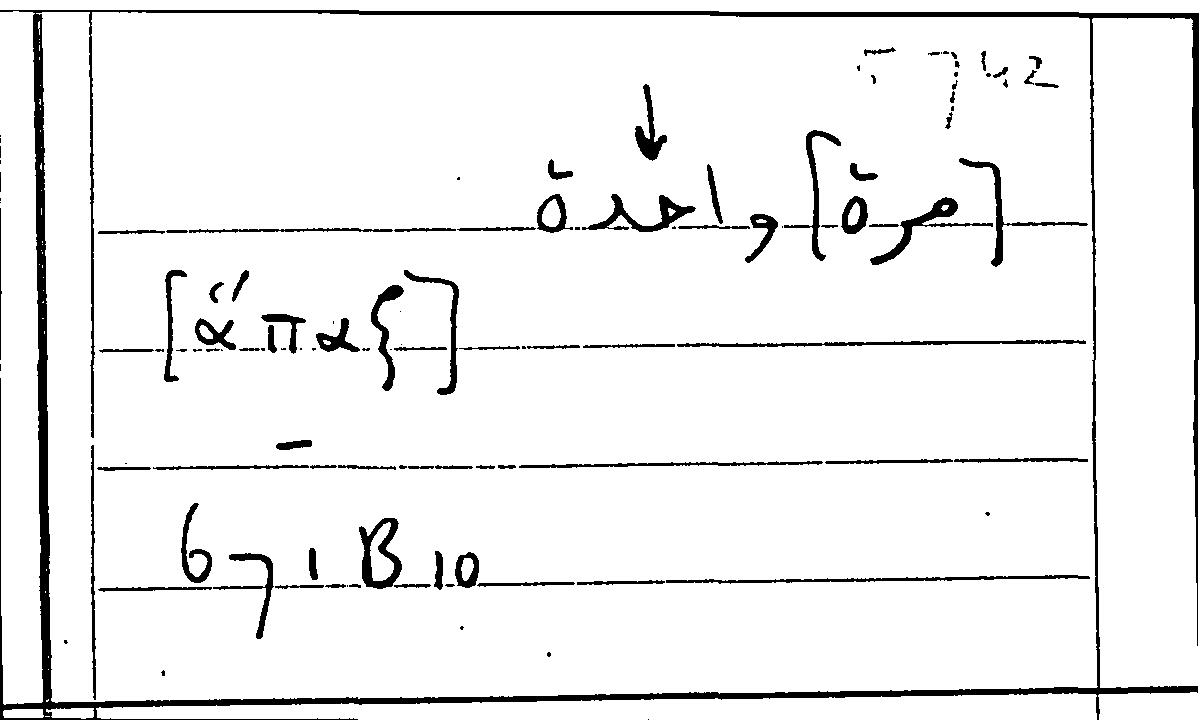 5742
[مرة] واحدة
[ἅπαξ]
–
671 B 10